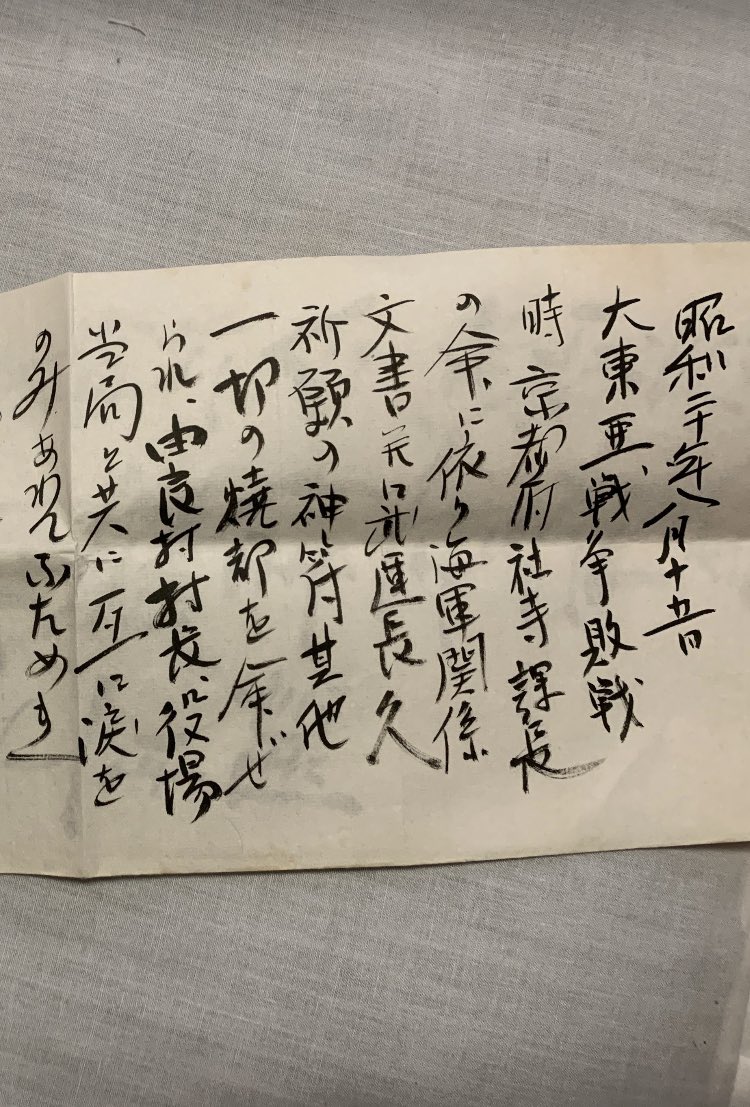 昭和二十年八月十五日
大東亜戦争敗戦
時京都府社寺課長
の命に依り海軍関係
文書並に武運長久
祈願の神符其他
一切の焼却を命ぜ
られ、由良村村長、役場
当局と共に互に涙を
のみ